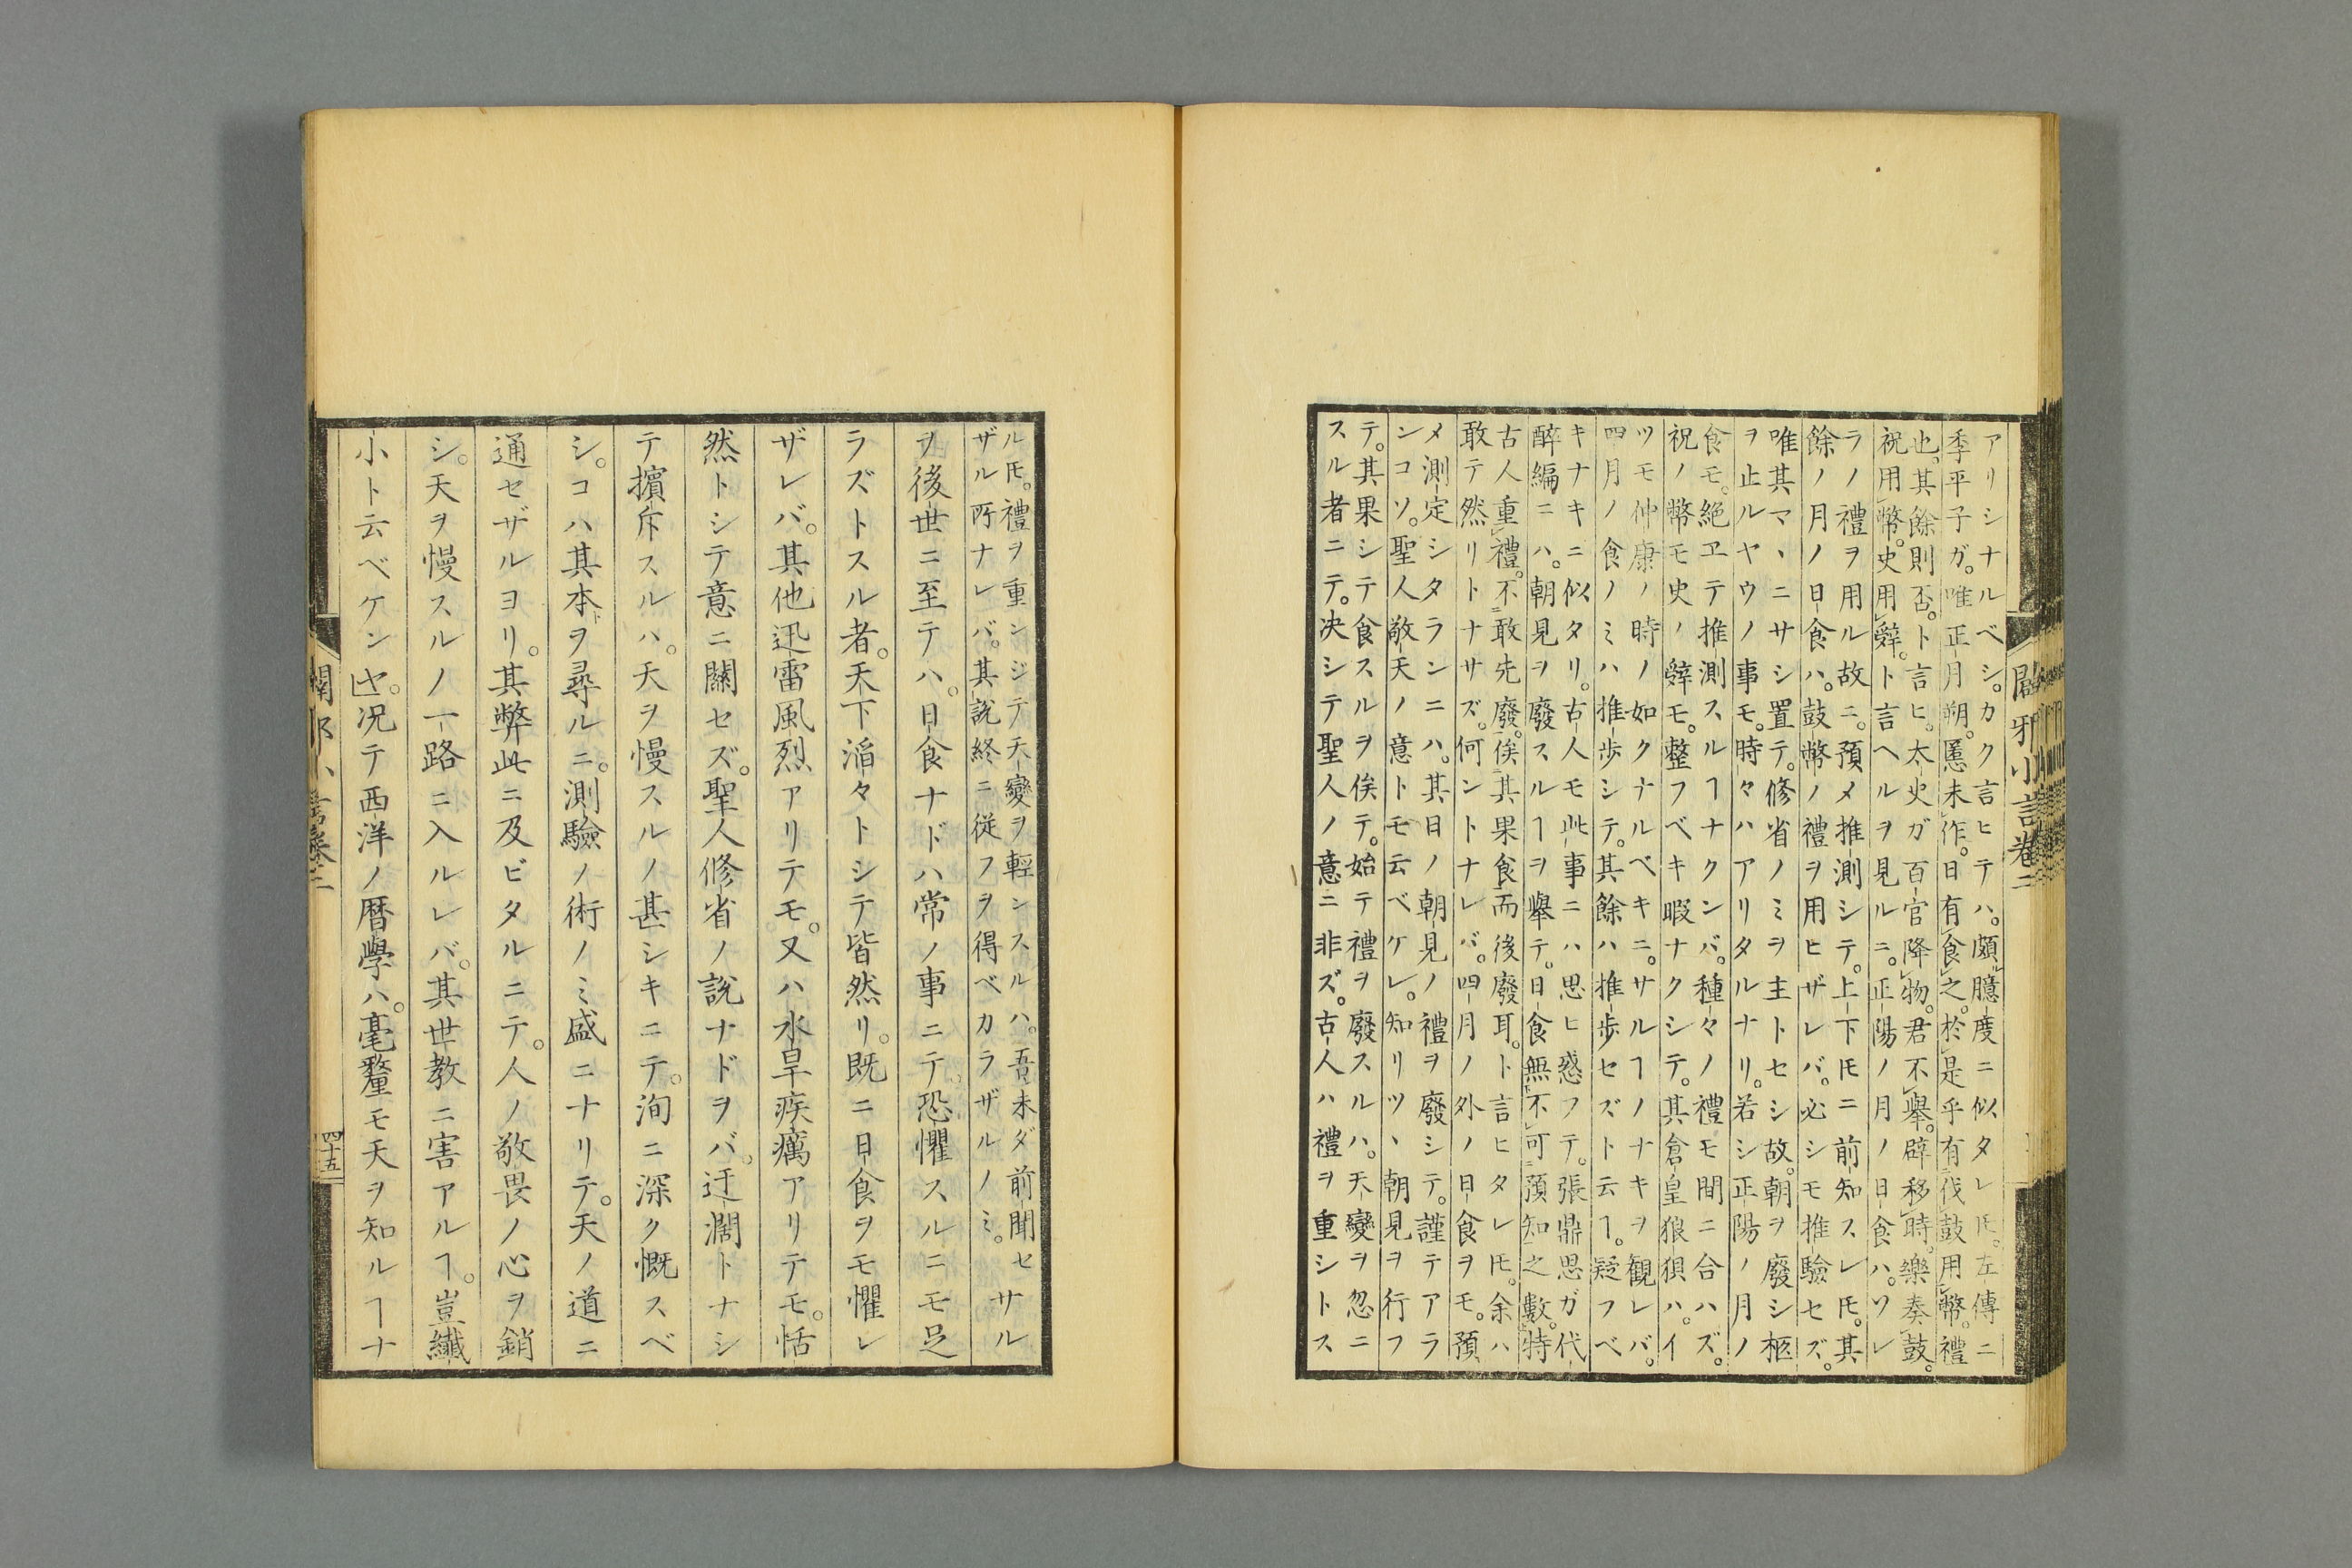 闢邪小言卷二
アリシナルベシ。カク言ヒテハ。頗臆度ニ似タレ𪜈。左傳ニ
季平子ガ。唯正月朔。慝未作。日有食之。於是乎有伐鼓用幣。禮
也。其餘則否。ト言ヒ。太史ガ百官降物。君不擧。辟移時。樂奏鼓。
祝用幣。史用辭。ト言ヘルヲ見ルニ。正陽ノ月ノ日食ハ。ソレ
ラノ禮ヲ用ル故ニ。預メ推測シテ。上下𪜈ニ前知スレ𪜈。其
餘ノ月ノ日食ハ。鼓幣ノ禮ヲ用ヒザレバ。必シモ推驗セズ。
唯其マヽニサシ置テ。修省ノミヲ主トセシ故。朝ヲ廢シ柩
ヲ止ルヤウノ事モ。時々ハアリタルナリ。若シ正陽ノ月ノ
食モ。絶ヱテ推測スルヿナクンバ。種々ノ禮モ間ニ合ハズ。
祝ノ幣モ史ノ辭モ。整フベキ暇ナクシテ。其倉皇狼狽ハ。イ
ツモ仲康ノ時ノ如クナルベキニ。サルヿノナキヲ観レバ。
四月ノ食ノミハ推歩シテ。其餘ハ推歩セズト云ヿ。疑フベ
キナキニ似タリ。古人モ此事ニハ思ヒ惑フテ。張鼎思ガ代
醉編ニハ。朝見ヲ廢スルヿヲ擧テ。日食無不可預知之數。特
古人重禮。不敢先廢。俟其果食而後廢耳。ト言ヒタレ𪜈。余ハ
敢テ然リトナサズ。何ントナレバ。四月ノ外ノ日食ヲモ。預
メ測定シタランニハ。其日ノ朝見ノ禮ヲ廢シテ。謹テアラ
ンコソ。聖人敬天ノ意トモ云ベケレ。知リツヽ朝見ヲ行フ
テ。其果シテ食スルヲ俟テ。始テ禮ヲ廢スルハ。天變ヲ忽ニ
スル者ニテ。决シテ聖人ノ意ニ非ズ。古人ハ禮ヲ重シトス
ル𪜈。禮ヲ重ンジテ天變ヲ輕ンスルハ。吾未ダ前聞セサル
ザル所ナレバ。其説終ニ従フヲ得ベカラザルノミ。
ヲ後世ニ至テハ。日食ナドハ常ノ事ニテ。恐懼スルニモ足
ラズトスル者。天下滔々トシテ皆然リ。既ニ日食ヲモ懼レ
ザレバ。其他迅雷風烈アリテモ。又ハ水旱疾癘アリテモ。恬
然トシテ意ニ關セズ。聖人修省ノ説ナドヲバ。迂濶トナシ
テ擯斥スルハ。天ヲ慢スルノ甚シキニテ。洵ニ深ク慨スベ
シ。コハ其本ヲ尋ルニ。測驗ノ術ノミ盛ニナリテ。天ノ道ニ
通セザルヨリ。其弊此ニ及ビタルニテ。人ノ敬畏ノ心ヲ銷
シ。天ヲ慢スルノ一路ニ入ルレバ。其世教ニ害アルヿ。豈纖
小ト云ベケンヤ。况テ西洋ノ暦學ハ。毫釐モ天ヲ知ルヿナ
闢邪小言卷二
四十五